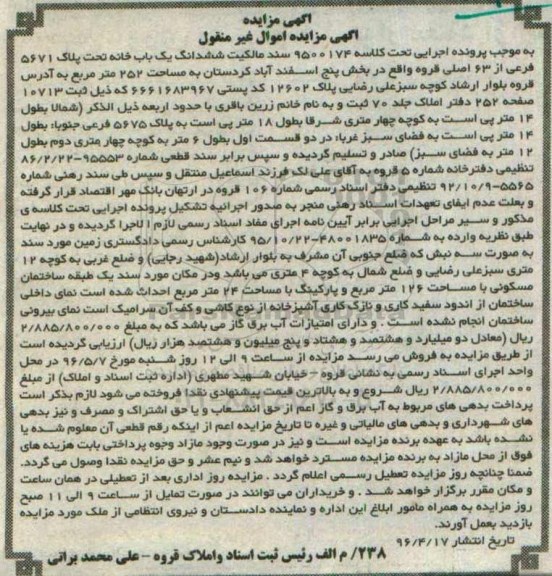 آگهی مزایده
آگهی مزایده اموال غیر منقول
به موجب پرونده اجرایی تحت کلاسه ۹۵۰۰۱۷۴ سند مالکیت ششدانگ یک باب خانه تحت پلاک ۵۶۷۱
فرعی از ۶۳ اصلی قروه واقع در بخش پنج اسفند آباد کردستان به مساحت ۲۵۲ متر مربع به آدرس
قروه بلوار ارشاد کوچه سبزعلی رضایی پلاک ۱۲۶۰۲ کد پستی ۶۶۶۱۶۸۳۹۶۷ که ذیل ثبت ۱۰۷۱۳
صفحه ۲۵۲ دفتر املاک جلد ۷۰ ثبت و به نام خانم زرین باقری با حدود اربعه ذیل الذکر (شمالا بطول
۱۴ متر پی است به کوچه چهار متری شرقا بطول ۱۸ متر پی است به پلاک ۵۶۷۵ فرعی جنوبا: بطول
۱۴ متر پی است به فضای سبز غربا: در دو قسمت اول بطول ۶ متر به کوچه چهار متری دوم بطول
۱۲ متر به فضای سبز) صادر و تسلیم گردیده و سپس برابر سند قطعی شماره ۹۵۵۵۳-۸۶/۲/۲۲
تنظیمی دفترخانه شماره ۵ قروه به آقای علی لک فرزند اسماعیل منتقل و سپس طی سند رهنی شماره
۵۵۶۵-۹۲/۱۰/۹ تنظیمی دفتر اسناد رسمی شماره ۱۰۶ قروه در ارتهان بانک مهر اقتصاد قرار گرفته
و بعلت عدم ایفای تعهدات اسناد رهنی منجر به صدور اجرائیه تشکیل پرونده اجرایی تحت کلاسه ی
مذکور و سیر مراحل اجرایی برابر آیین نامه اجرای مفاد اسناد رسمی لازم الاجرا گردیده و در نهایت
طبق نظریه وارده به شماره ۴۸۰۰۱۸۳۵-۹۵/۱۰/۲۲ کارشناس رسمی دادگستری زمین مورد سند
به صورت سه نبش که ضلع جنوبی آن مشرف به بلوار ارشاد(شهید رجایی) و ضلع غربی به کوچه ۱۲
متری سبزعلی رضایی و ضلع شمال به کوچه ۴ متری می باشد ودر مکان مورد سند یک طبقه ساختمان
مسکونی با مساحت ۱۲۶ متر مربع و پارکینگ با مساحت ۲۴ متر مربع احداث شده است نمای داخلی
ساختمان از اندود سفید کاری و نازک کاری آشپزخانه از نوع کاشی و کف آن سرامیک است نمای بیرونی
ساختمان انجام نشده است . و دارای امتیازات آب برق گاز می باشد که به مبلغ ۲/۸۸۵/۸۰۰/۰۰۰
ریال (معادل دو میلیارد و هشتصد و هشتاد و پنج میلیون و هشتصد هزار ریال) ارزیابی گردیده است
از طریق مزایده به فروش می رسد مزایده از ساعت ۹ الی ۱۲ روز شنبه مورخ ۹۶/۵/۷ در محل
واحد اجرای اسناد رسمی به نشانی قروه - خیابان شهید مطهری (اداره ثبت اسناد و املاک) از مبلغ
۲/۸۸۵/۸۰۰/۰۰۰ ریال شروع و به بالاترین قیمت پیشنهادی نقدا فروخته می شود لازم بذکر است
پرداخت بدهی های مربوط به آب برق و گاز اعم از حق انشعاب و یا حق اشتراک و مصرف و نیز بدهی
های شهرداری و بدهی های مالیاتی و غیره تا تاریخ مزایده اعم از اینکه رقم قطعی آن معلوم شده یا
نشده باشد به عهده برنده مزایده است و نیز در صورت وجود مازاد وجوه پرداختی بابت هزینه های
فوق از محل مازاد به برنده مزایده مسترد خواهد شد و نیم عشر و حق مزایده نقدا وصول می گردد.
ضمنا چنانچه روز مزایده تعطیل رسمی اعلام گردد . مزایده روز اداری بعد از تعطیلی در همان ساعت
و مکان مقرر برگزار خواهد شد . و خریداران می توانند در صورت تمایل از ساعت ۹ الی ۱۱ صبح
روز مزایده به همراه مامور ابلاغ این اداره و نماینده دادستان و نیروی انتظامی از ملک مورد مزایده
بازدید بعمل آورند.
تاریخ انتشار ۹۶/۴/۱۷
۲۳۸/ م الف رئیس ثبت اسناد واملاک قروه - علی محمد براتی